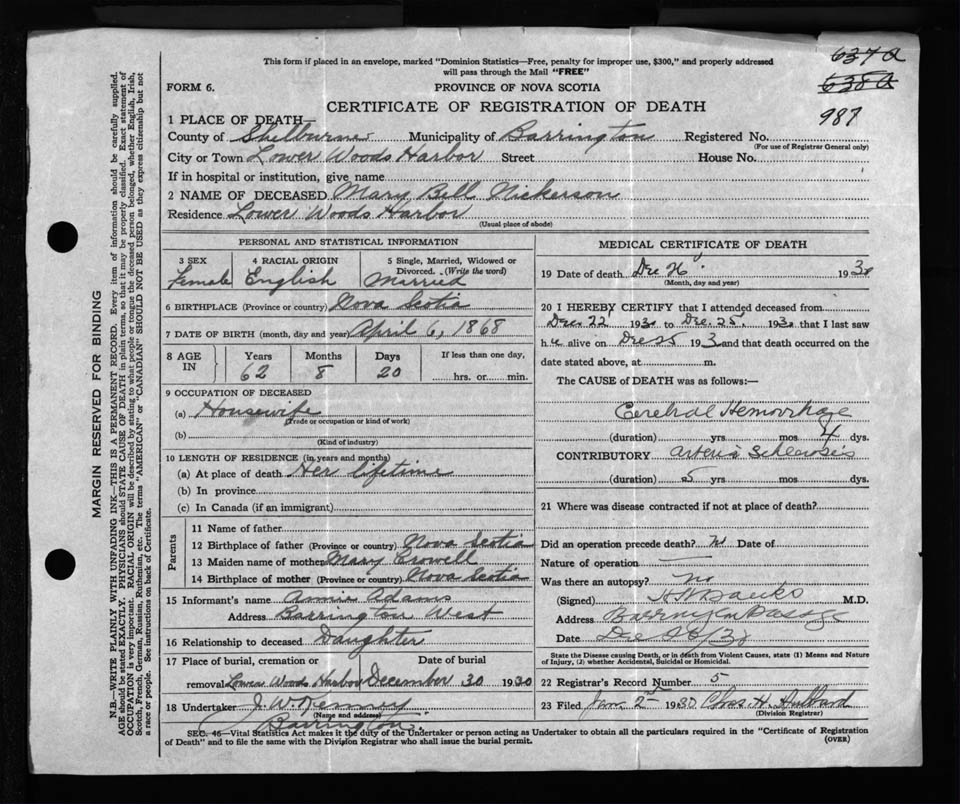 This form if placed in an envelope, marked "Dominion Statistics—Free, penalty for improper use, $300," and properly addressed
will pass through the Mail "FREE"
637 a
638 a
987
FORM 6.
PROVINCE OF NOVA SCOTIA
CERTIFICATE OF REGISTRATION OF DEATH
1 PLACE OF DEATH—
County of Shelburne Municipality of Barrington Registered No.
(For use of Registrar General only)
City or Town Lower Woods Harbor Street House No.
If in hospital or institution, give name
2 NAME OF DECEASED Mary Bell Nickerson
Residence Lower Woods Harbor
(Usual place of abode)
PERSONAL AND STATISTICAL INFORMATION
3 SEX 4 RACIAL ORIGIN 5 Single, Married, Widowed or
Divorced. (Write the word)
Female English Married
6 BIRTHPLACE (Province or country) Nova Scotia
7 DATE OF BIRTH (month, day and year) April 6, 1868
8 AGE IN Years Months Days If less than one day,
62 8 20 hrs. or min.
9 OCCUPATION OF DECEASED
(a) Housewife
(Trade or occupation or kind of work)
(b)
(Kind of industry)
10 LENGTH OF RESIDENCE (in years and months)
(a) At place of death Her lifetime
(b) In province
(c) In Canada (if an immigrant)
Parents
11 Name of father
12 Birthplace of father (Province or country) Nova Scotia
13 Maiden name of mother Mary Crowell
14 Birthplace of mother (Province or country) Nova Scotia
15 Informant's name Annie Adams
Address Barrington West
16 Relationship to deceased Daughter
17 Place of burial, cremation or Date of burial
removal Lower Woods Harbor December 30 1930
18 Undertaker J. W. Kenney
(Name and address)
Barrington
MEDICAL CERTIFICATE OF DEATH
19 Date of death Dec 193
(Month, day and year)
20 I HEREBY CERTIFY that I attended deceased from
Dec. 22 193 to Dec. 25, 193 that I last saw
h alive on 193 and that death occurred on the
date stated above, at m.
The CAUSE OF DEATH was as follows:—
Cerebral Hemorrhage
(duration) yrs mos 4 dys.
CONTRIBUTORY Arterio Schlerosis
(duration) 5 yrs mos dys.
21 Where was disease contracted if not at place of death?
Did an operation precede death? Date of
Nature of operation
Was there an autopsy? No
(Signed) Banks M.D.
Address Barrington Passage
Date Dec
State the Disease causing Death, or in death from Violent Causes, state (1) Means and Nature
of Injury, (2) whether Accidental, Suicidal or Homicidal.
22 Registrar's Record Number 5
23 Filed Jan 2nd 1930 Chas. H. Hubbard
(Division Registrar)
SEC. 46—Vital Statistics Act makes it the duty of the Undertaker or person acting as Undertaker to obtain all the particulars required in the "Certificate of Registration
of Death" and to file the same with the Division Registrar who shall issue the burial permit.
(OVER)
MARGIN RESERVED FOR BINDING
N.B.—WRITE PLAINLY WITH UNFADING INK—THIS IS A PERMANENT RECORD. Every item of information should be carefully supplied.
AGE should be stated EXACTLY. PHYSICIANS should STATE CAUSE OF DEATH in plain terms, so that it may be properly classified. Exact statement of
OCCUPATION is very important. RACIAL ORIGIN will be described by stating to what people or tongue the deceased person belonged, whether English, Irish,
Scotch, French, German, Russian, Ruthenian, etc. The terms "AMERICAN" or "CANADIAN" SHOULD NOT BE USED as they express citizenship but not
a race or people. See instructions on back of Certificate.